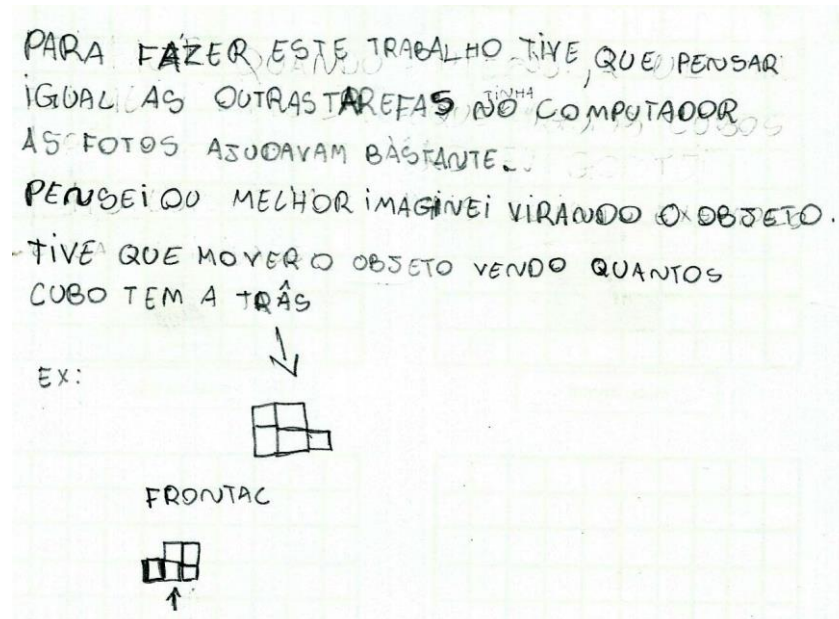 PARA FAZER ESTE TRABALHO TIVE QUE PENSAR
IGUAL AS OUTRAS TAREFAS TINHA NO COMPUTADOR
AS FOTOS AJUDAVAM BASTANTE.
PENSEI OU MELHOR IMAGINEI VIRANDO O OBJETO.
TIVE QUE MOVER O OBJETO VENDO QUANTOS
CUBO TEM A TRÂS
EX:
FRONTAL